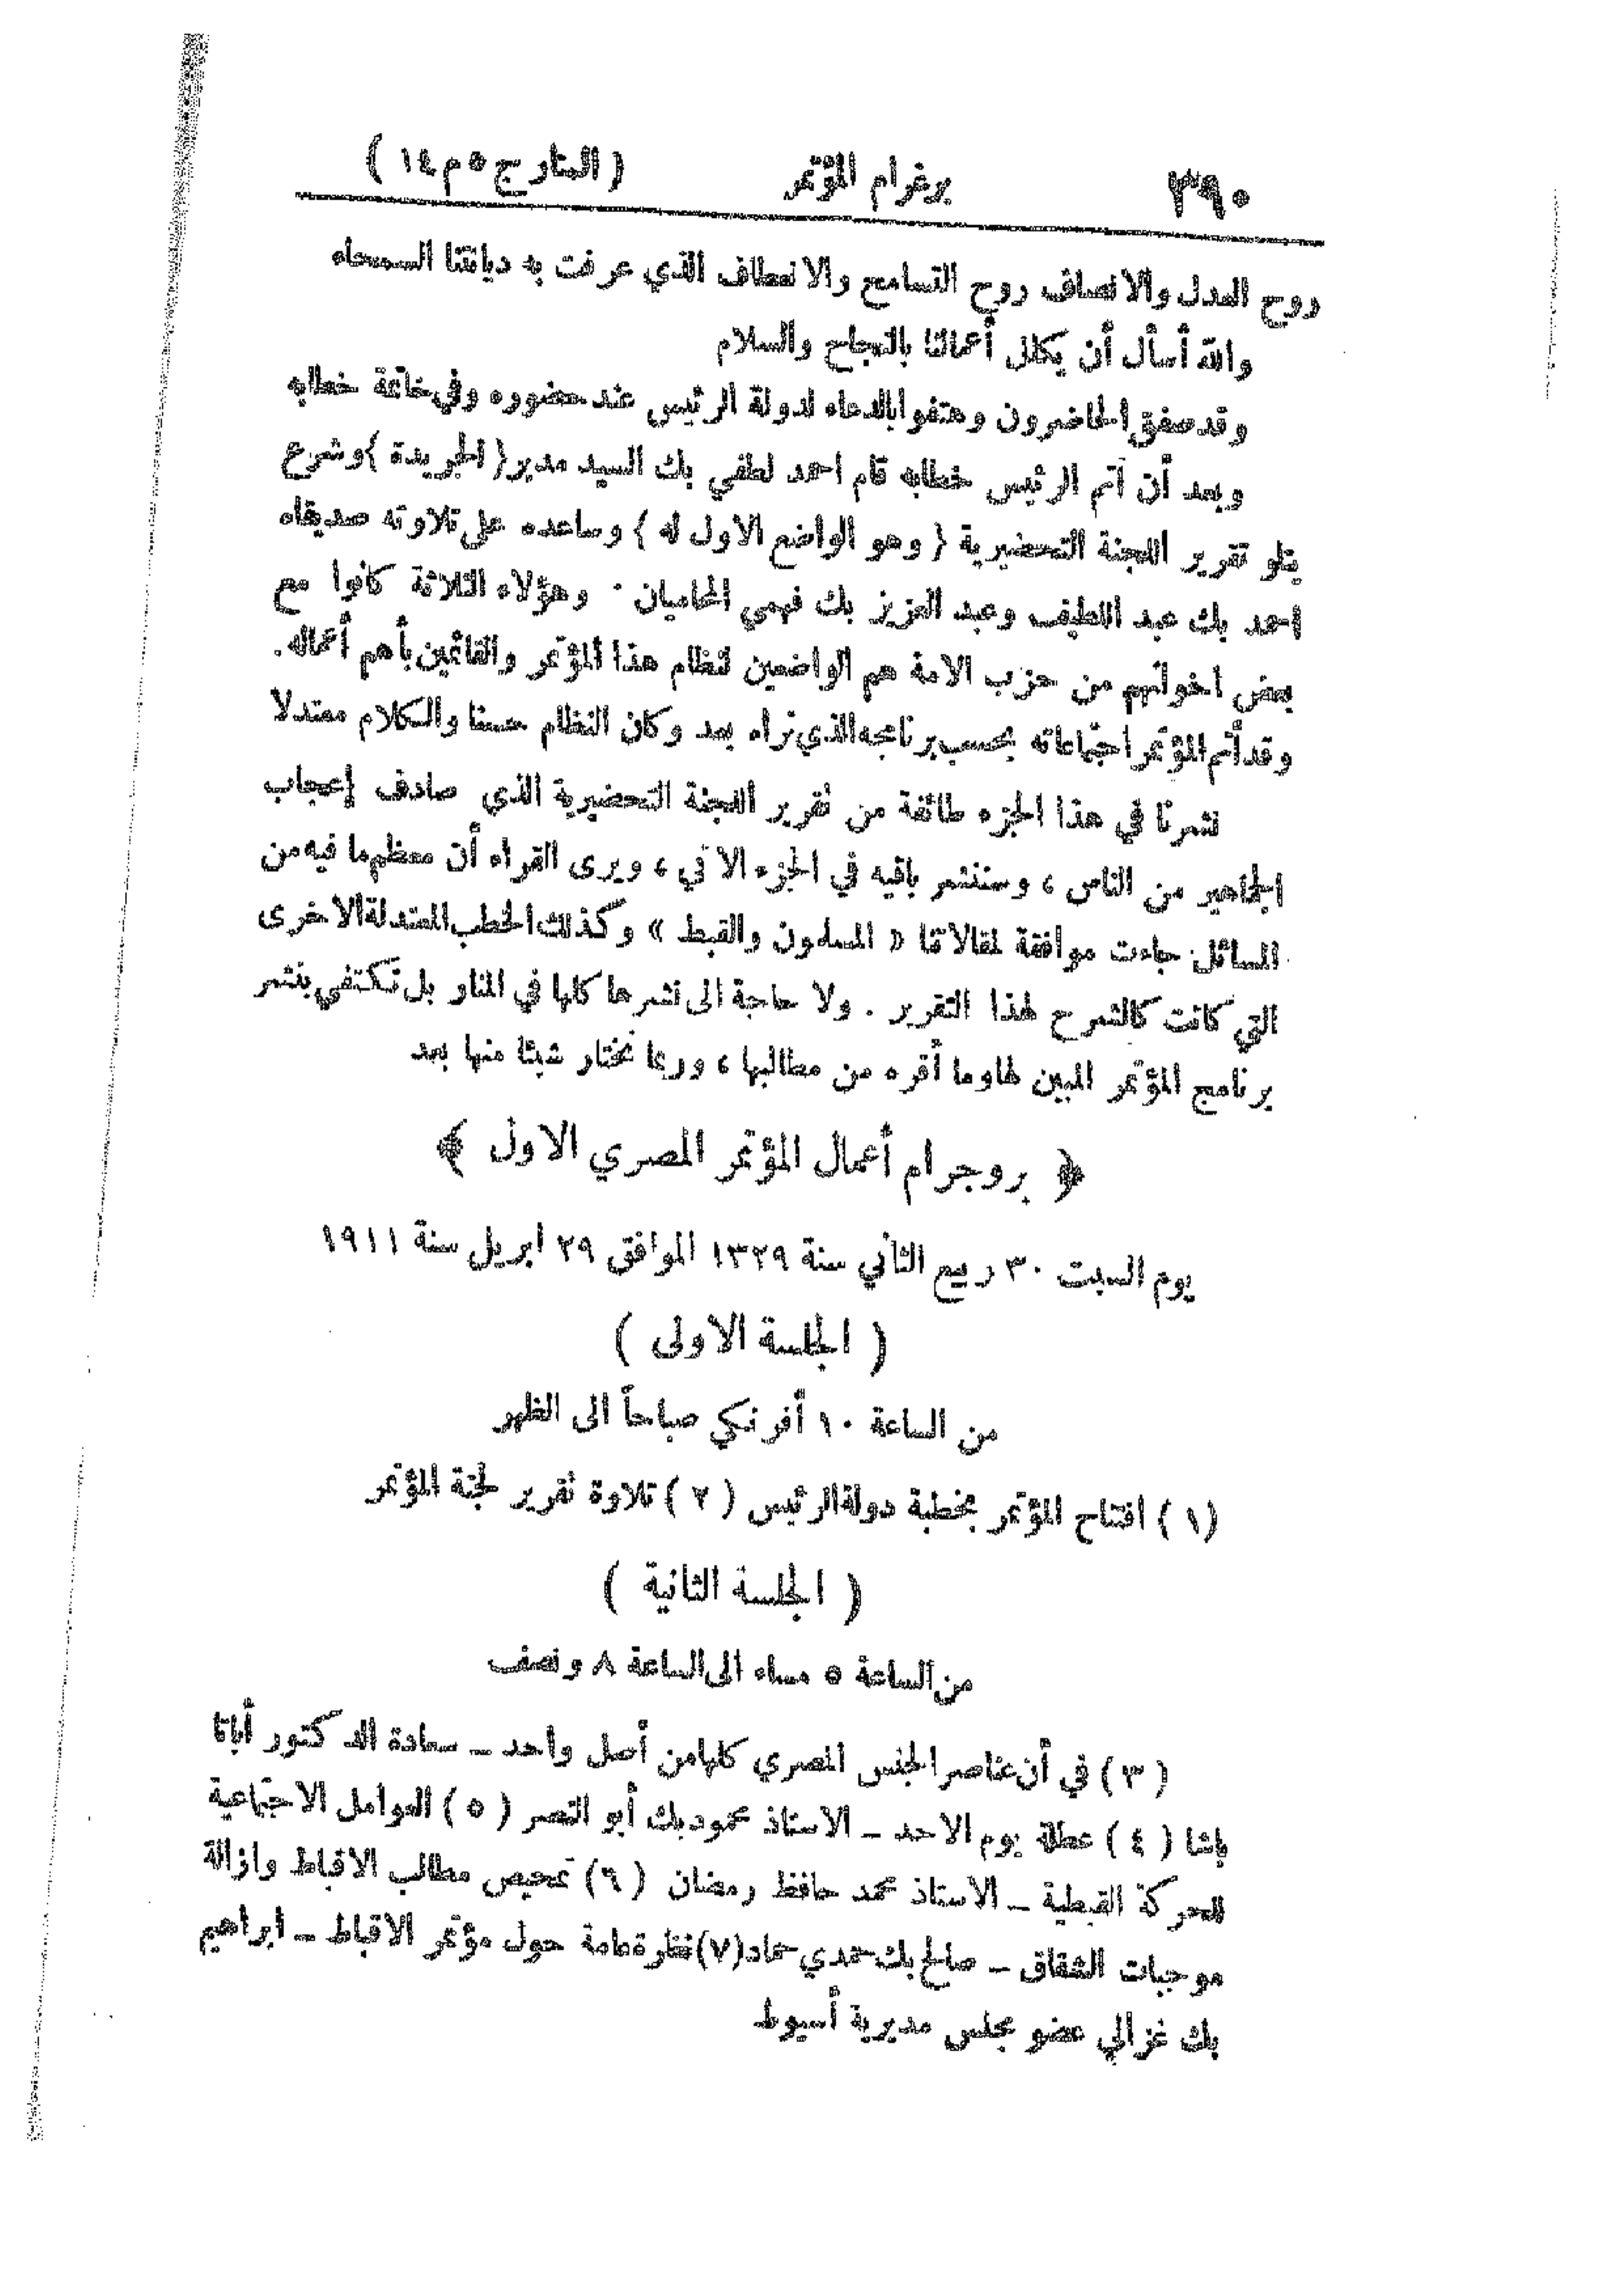 ٣٩٠ برغرام المؤتمر ( المنارج٥م١٤ )
روح العدل والانصاف روح التسامح والانعطاف الذي عرفت به ديانتنا السمحاء
والله أسأل أن يكلل أعمالنا بالنجاح والسلام
وقدصفق الحاضرون وهتفوابالدعاء لدولة الرئيس عند حضوره وفي خاتمة خطابه
وبعد أن أتم الرئيس خطابه قام احمد لطفي بك السيد مدير ( الجريدة ) وشرع
يتلو تقرير اللجنة التحضيرية ( وهو الواضع الاول له ) وساعده على تلاوته صديقاه
احمد بك عبد اللطيف وعبد العزيز بك فهمي المحاميان . وهؤلاء الثلاثة كانوا مع
بعض اخوانهم من حزب الامة هم الواضعين لنظام هذا المؤتمر والقائمين بأهم أعماله.
وقد أتم المؤتمر اجتماعاته بحسب برنامجه الذي تراه بعد وكان النظام حسنا والكلام معتدلا
نشرنا في هذا الجزء طائفة من تقرير اللجنة التحضيرية الذي صادف إعجاب
الجماهير من الناس ، وسننشر باقيه في الجزء الآتي ، ويرى القراء أن معظم ما فيه من
المسائل جاءت موافقة لمقالاتنا « المسلمون والقبط » وكذلك الخطب المعتدلة الاخرى
التي كانت كالشرح لهذا التقرير . ولا حاجة الى نشرها كلها في المنار بل نكتفي بنشر
برنامج المؤتمر المبين لها وما أقره من مطالبها ، وربما نختار شيئا منها بعد
﴿ بروجرام أعمال المؤتمر المصري الاول ﴾
يوم السبت ٣٠ ربيع الثاني سنة ١٣٢٩ الموافق ٢٩ ابريل سنة ١٩١١
( الجلسة الاولى )
من الساعة ١٠ أفرنكي صباحاً الى الظهر
(١) افتتاح المؤتمر بخطبة دولة الرئيس (٢) تلاوة تقرير لجنة المؤتمر
( الجلسة الثانية )
من الساعة ٥ مساء الى الساعة ٨ ونصف
(٣) في أن عناصر الجنس المصري كلها من أصل واحد ــ سعادة الدكتور أباتا
باشا (٤) عطلة يوم الاحد ــ الاستاذ محمود بك أبو النصر (٥) العوامل الاجتماعية
للحركة القبطية ــ الاستاذ محمد حافظ رمضان (٦) تمحيص مطالب الاقباط وازالة
موجبات الشقاق ــ صالح بك حمدي حماد (٧) نظرة عامة حول مؤتمر الاقباط ــ ابراهيم
بك غزالي عضو مجلس مديرية أسيوط